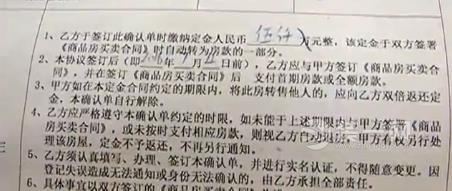 1、乙方于签订此确认单时缴纳定金人民币 伍仟 元整，该定金于双方签署
《商品房买卖合同》时自动转为房款的一部分。
2、本协议签订后（即 年 月 日前），乙方应与甲方签署《商品房买卖合
同》，并在签订《商品房买卖合同》后 支付首期房款或全额房款。
3、甲方如在本定金合同约定的期限内，将此房转售他人的，应向乙方双倍返还定
金，本确认单自行解除。
4、乙方应严格遵守本确认单约定的时限，如未能于上述期限内与甲方签署《商品
房买卖合同》，或未按时支付相应房款，则视乙方自动退房，甲方有权另行处
理该房屋，定金不予退还，不再另行通知。
5、乙方须认真填写、办理、签订本确认单，并进行实名认证，不得随意变更。因
登记失误造成无法通知或身份无法确认的，由乙方承担全部责任。
6、具体事宜以双方签订的《商品房买卖合同